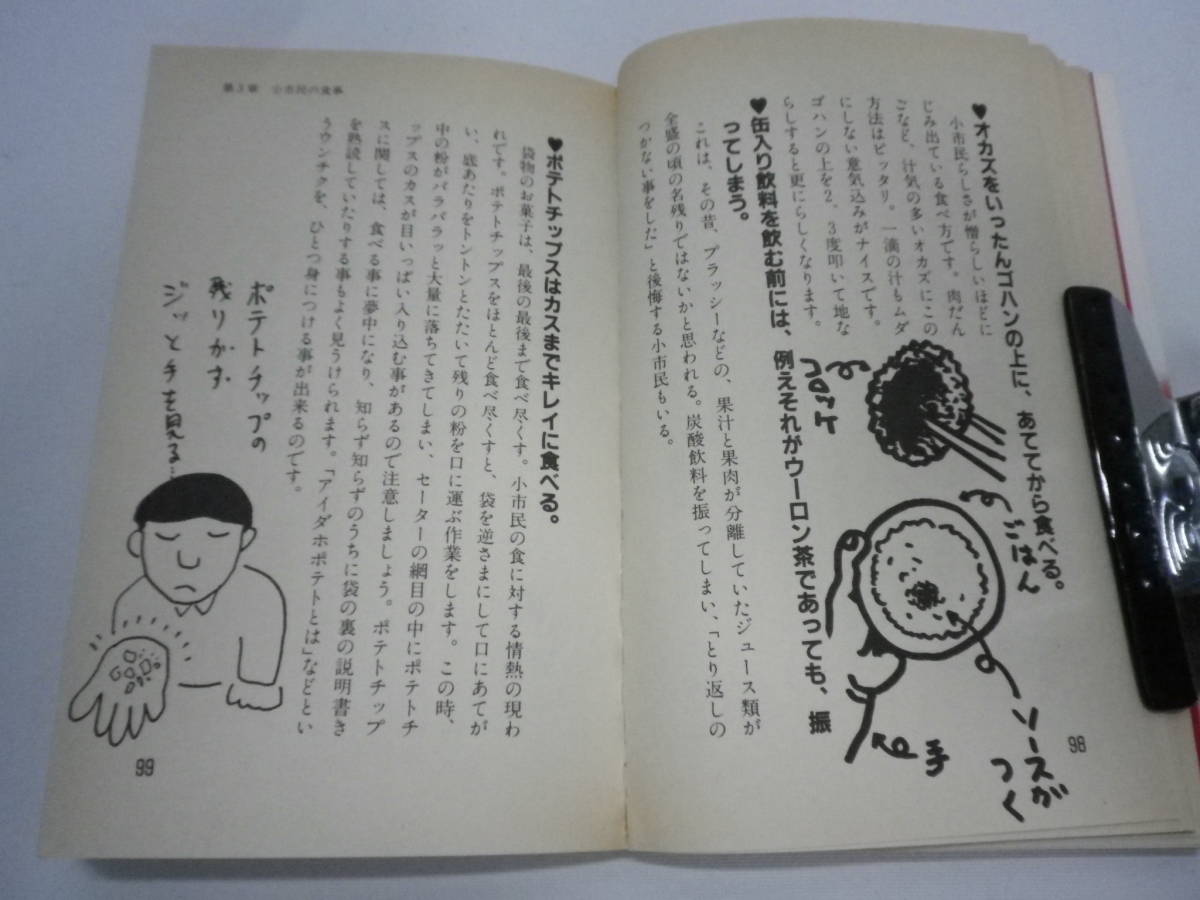 ♥オカズをいったんゴハンの上に、あててから食べる。
小市民らしさが憎らしいほどに
じみ出ている食べ方です。肉だん
ごなど、汁気の多いオカズにこの
方法はピッタリ。一滴の汁もムダ
にしない意気込みがナイスです。
ゴハンの上を2、3度叩いて地な
らしすると更にらしくなります。
コロッケ
ごはん
ソースが
つく
手
♥缶入り飲料を飲む前には、例えそれがウーロン茶であっても、振
ってしまう。
これは、その昔、プラッシーなどの、果汁と果肉が分離していたジュース類が
全盛の頃の名残りではないかと思われる。炭酸飲料を振ってしまい、「とり返しの
つかない事をした」と後悔する小市民もいる。
98
第3章 小市民の食事
♥ポテトチップスはカスまでキレイに食べる。
袋物のお菓子は、最後の最後まで食べ尽くす。小市民の食に対する情熱の現わ
れです。ポテトチップスをほとんど食べ尽くすと、袋を逆さまにして口にあてが
い、底あたりをトントンとたたいて残りの粉を口に運ぶ作業をします。この時、
中の粉がバラバラッと大量に落ちてきてしまい、セーターの網目の中にポテトチ
ップスのカスが目いっぱい入り込む事があるので注意しましょう。ポテトチップ
スに関しては、食べる事に夢中になり、知らず知らずのうちに袋の裏の説明書き
を熟読していたりする事もよく見うけられます。「アイダホポテトとは」などとい
うウンチクを、ひとつ身につける事が出来るのです。
ポテトチップの
残りかす
ジッと手を見る…
99